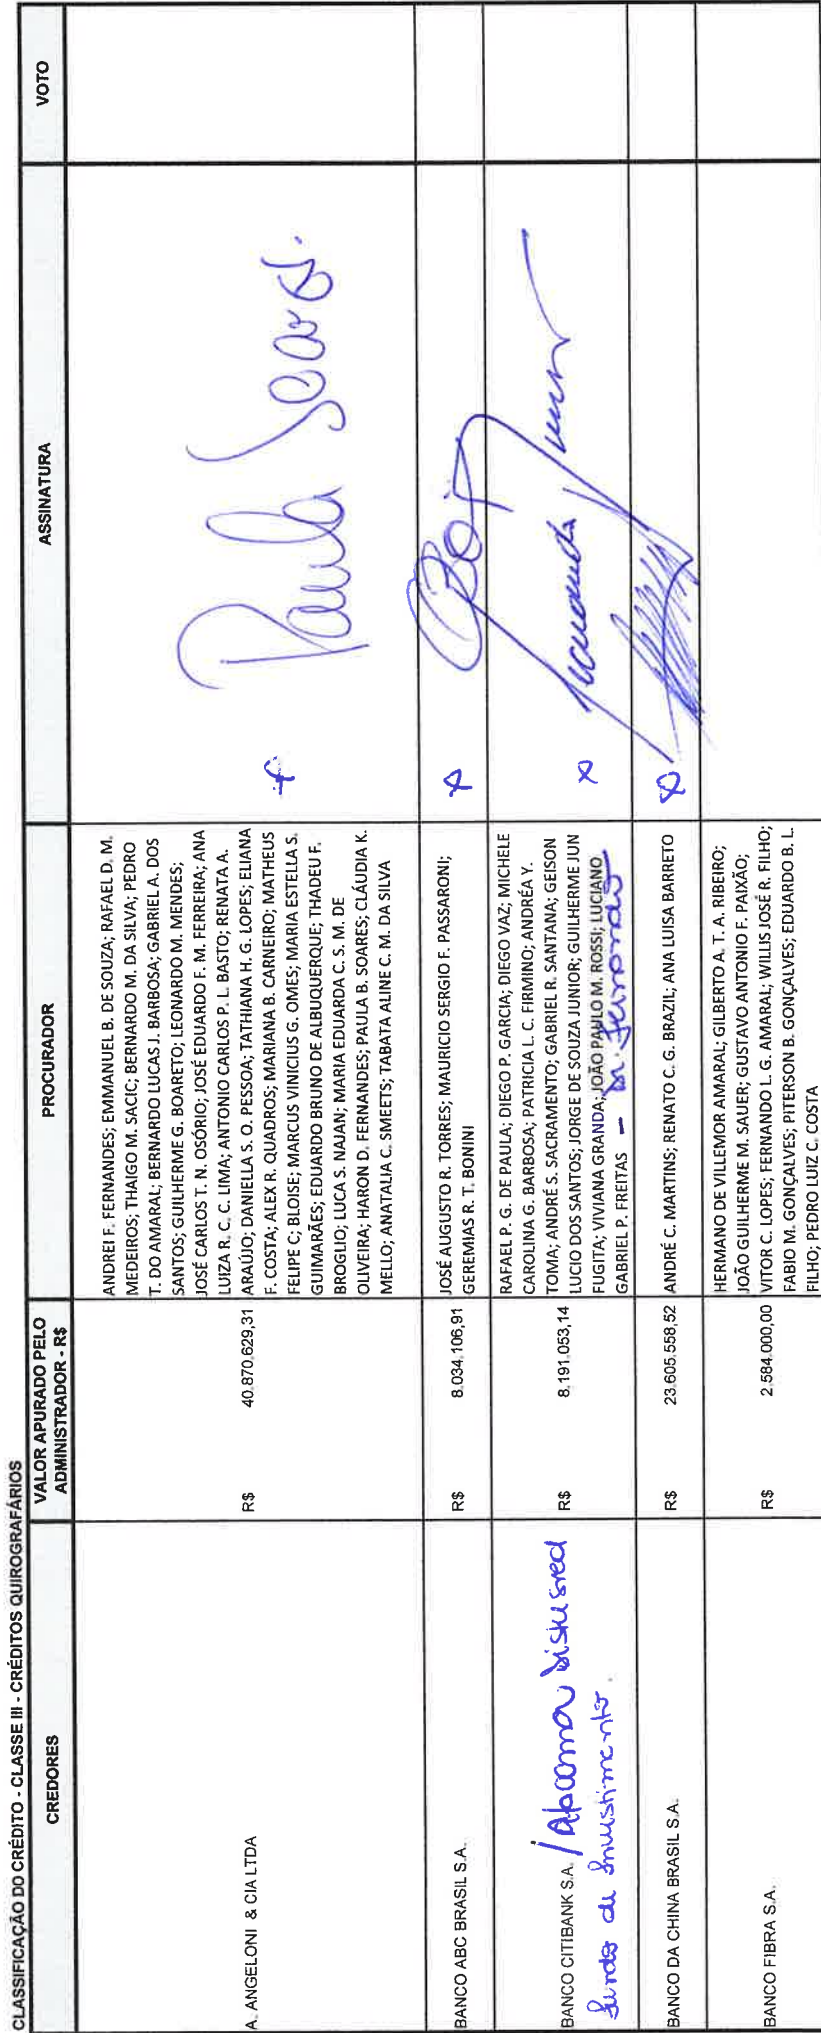 CLASSIFICAÇÃO DO CRÉDITO - CLASSE III - CRÉDITOS QUIROGRAFÁRIOS
CREDORES
VALOR APURADO PELO
ADMINISTRADOR - R$
PROCURADOR
ASSINATURA
VOTO
A. ANGELONI & CIA LTDA
R$ 40.870.629,31
ANDREI F. FERNANDES; EMMANUEL B. DE SOUZA; RAFAEL D. M.
MEDEIROS; THAIGO M. SACIC; BERNARDO M. DA SILVA; PEDRO
T. DO AMARAL; BERNARDO LUCAS J. BARBOSA; GABRIEL A. DOS
SANTOS; GUILHERME G. BOARETO; LEONARDO M. MENDES;
JOSÉ CARLOS T. N. OSÓRIO; JOSÉ EDUARDO F. M. FERREIRA; ANA
LUIZA R. C. C. LIMA; ANTONIO CARLOS P. L. BASTO; RENATA A.
ARAÚJO; DANIELLA S. O. PESSOA; TATHIANA H. G. LOPES; ELIANA
F. COSTA; ALEX R. QUADROS; MARIANA B. CARNEIRO; MATHEUS
FELIPE C; BLOISE; MARCUS VINICIUS G. OMES; MARIA ESTELLA S.
GUIMARÃES; EDUARDO BRUNO DE ALBUQUERQUE; THADEU F.
BROGLIO; LUCA S. NAJAN; MARIA EDUARDA C. S. M. DE
OLIVEIRA; HARON D. FERNANDES; PAULA B. SOARES; CLÁUDIA K.
MELLO; ANATALIA C. SMEETS; TABATA ALINE C. M. DA SILVA
Paula Soares.
BANCO ABC BRASIL S.A.
R$ 8.034.106,91
JOSÉ AUGUSTO R. TORRES; MAURICIO SERGIO F. PASSARONI;
GEREMIAS R. T. BONINI
BANCO CITIBANK S.A. /
fundo de Investimento.
R$ 8.191.053,14
RAFAEL P. G. DE PAULA; DIEGO P. GARCIA; DIEGO VAZ; MICHELE
CAROLINA G. BARBOSA; PATRICIA L. C. FIRMINO; ANDRÉA Y.
TOMA; ANDRÉ S. SACRAMENTO; GABRIEL R. SANTANA; GEISON
LUCIO DOS SANTOS; JORGE DE SOUZA JUNIOR; GUILHERME JUN
FUGITA; VIVIANA GRANDA; JOÃO PAULO M. ROSSI; LUCIANO
GABRIEL P. FREITAS -
BANCO DA CHINA BRASIL S.A.
R$ 23.605.558,52
ANDRÉ C. MARTINS; RENATO C. G. BRAZIL; ANA LUISA BARRETO
BANCO FIBRA S.A.
R$ 2.584.000,00
HERMANO DE VILLEMOR AMARAL; GILBERTO A. T. A. RIBEIRO;
JOÃO GUILHERME M. SAUER; GUSTAVO ANTONIO F. PAIXÃO;
VITOR C. LOPES; FERNANDO L. G. AMARAL; WILLIS JOSÉ R. FILHO;
FABIO M. GONÇALVES; PITERSON B. GONÇALVES; EDUARDO B. L.
FILHO; PEDRO LUIZ C. COSTA